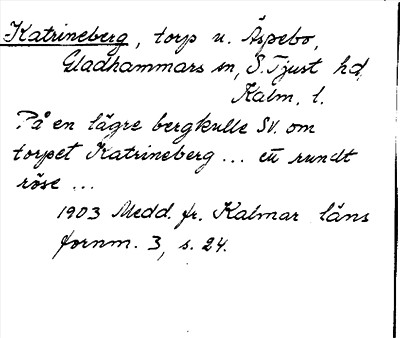 Katrineberg, torp u. Äspebo,
Gladhammars sn, S. Tjust hd,
Kalm. l.
På en lägre bergkulle SV. om
torpet Katrineberg ... ett rundt
röse ...
1903 Medd. fr. Kalmar läns
fornm. 3, s. 24.